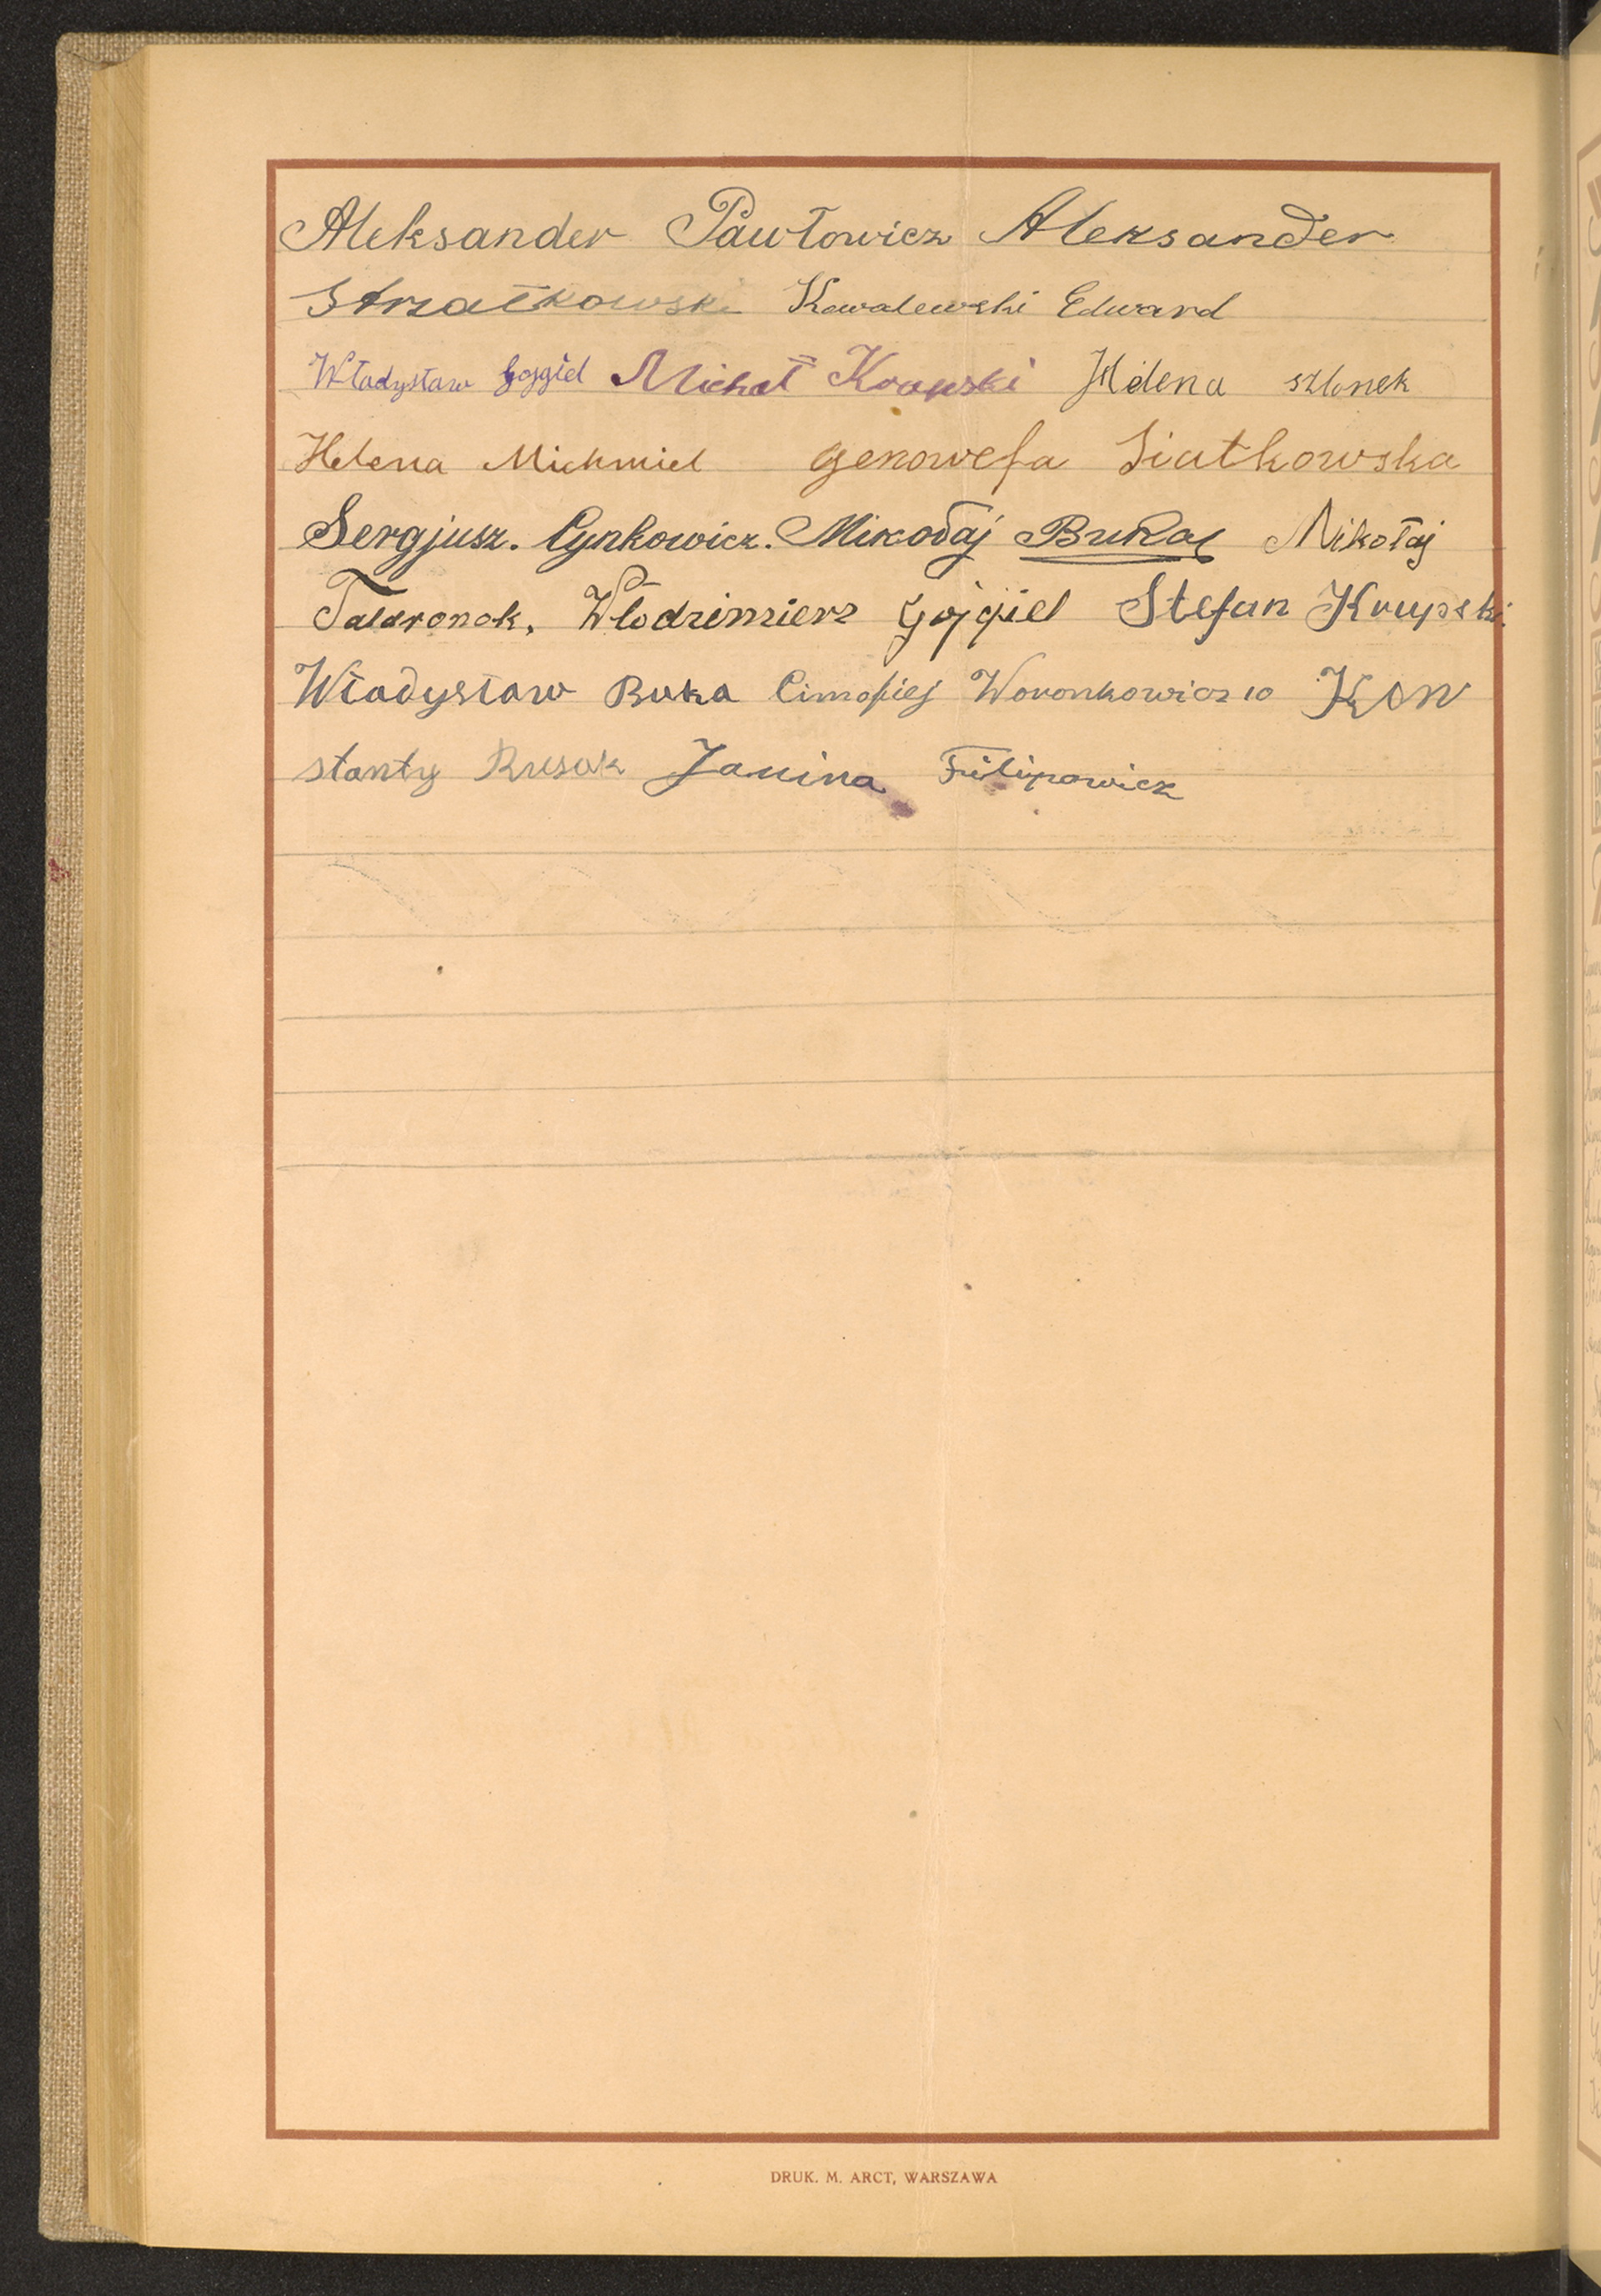 Aleksander Pawłowicz Aleksander
Strzałkowski Kowalewski Edward
Władysław Gojgiel Michał Helena szlonek
Helena Michmiel Genowefa Siatkowska
Sergjusz. Cynkowicz. Mikołaj Bukaj Mikołaj
Włodzimierz Gojgiel Stefan Krupski.
Władysław Buka Woronkowicz Kon
stanty Rusak Janina Filipowicz
DRUK. M. ARCT, WARSZAWA